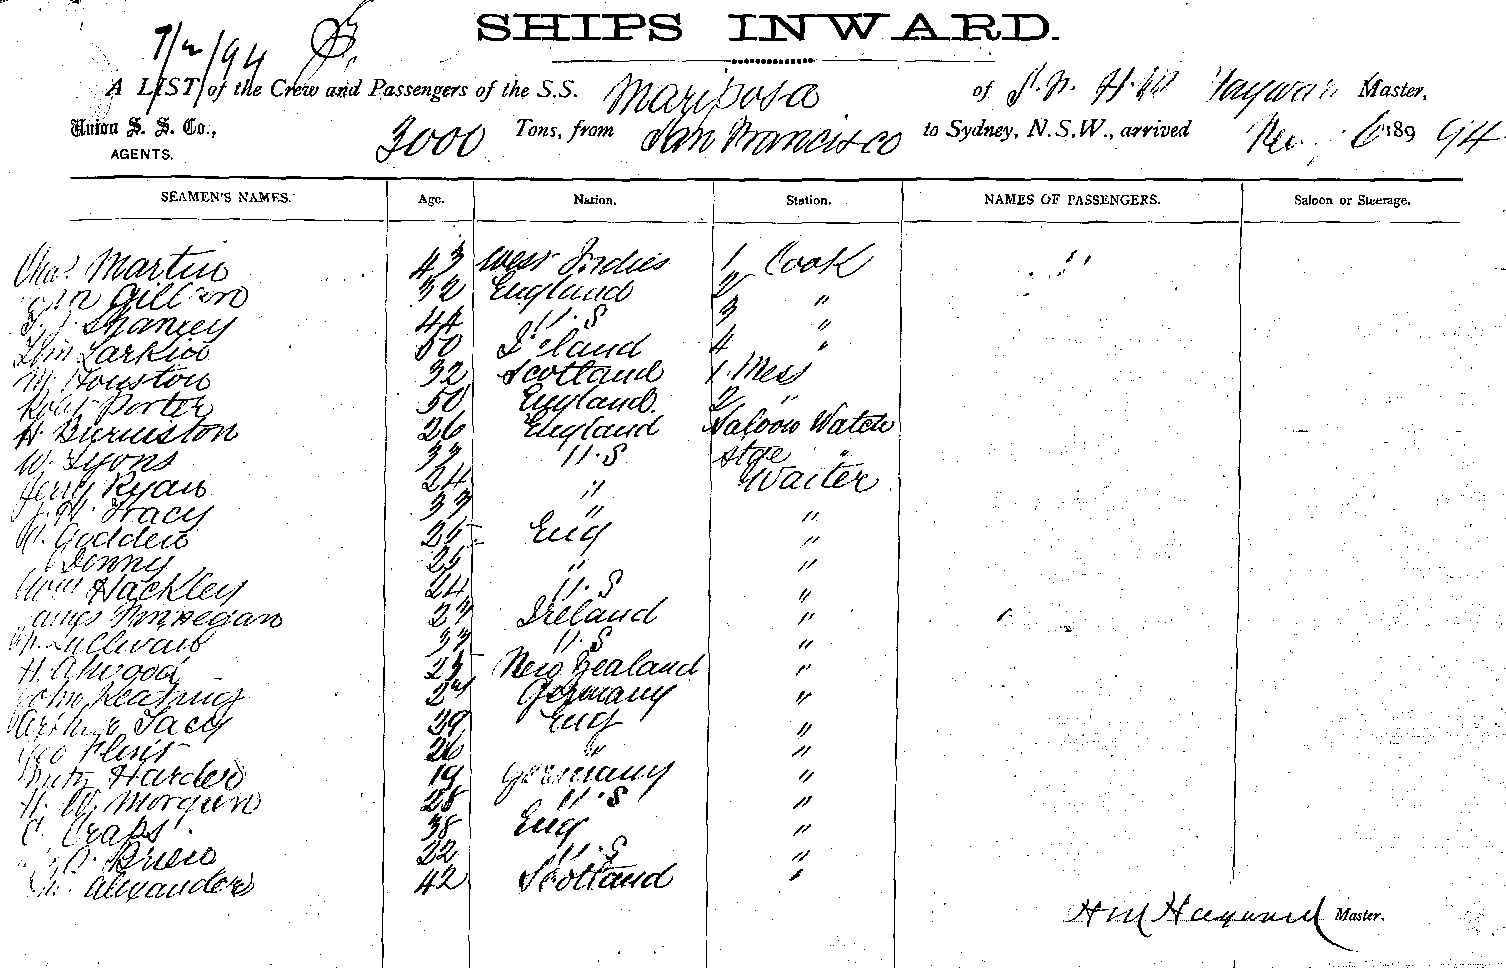 7/2/94
SHIPS INWARD.
A LIST of the Crew and Passengers of the S.S. Mariposa of Master,
Union S. S. Co., 3000 Tons, from San Francisco to Sydney, N.S.W., arrived 6 189 94
AGENTS.
SEAMEN'S NAMES. Age. Nation. Station. NAMES OF PASSENGERS. Saloon or Steerage.
Chas Martin 43 West Indies 1 Cook
Gillon 32 England 2 "
Shanley 44 U.S 3 "
Larkin 50 Ireland 4 "
M. Houston 32 Scotland 1. Mess
Robt Porter 50 England. 2 "
H. Burniston 26 England Saloon Watch
W. Lyons 33 U.S stge "
Jerry Ryan 24 " Waiter
Tracy 33 " "
Godden 25 Eng "
Denny 25 " "
Wm Hackley 24 U.S "
James Finnegan 27 Ireland "
Sullivan 33 U.S "
H. Atwood 25 New Zealand "
John Keating 27 Germany "
Arthur Lacy 29 Eng "
Geo Flint 26 " "
Harder 19 Germany "
H. W. Morgan 28 U.S "
C. Craps 38 Eng "
Brien 22 U.S "
Alexander 42 Scotland "
H M Hayward Master.